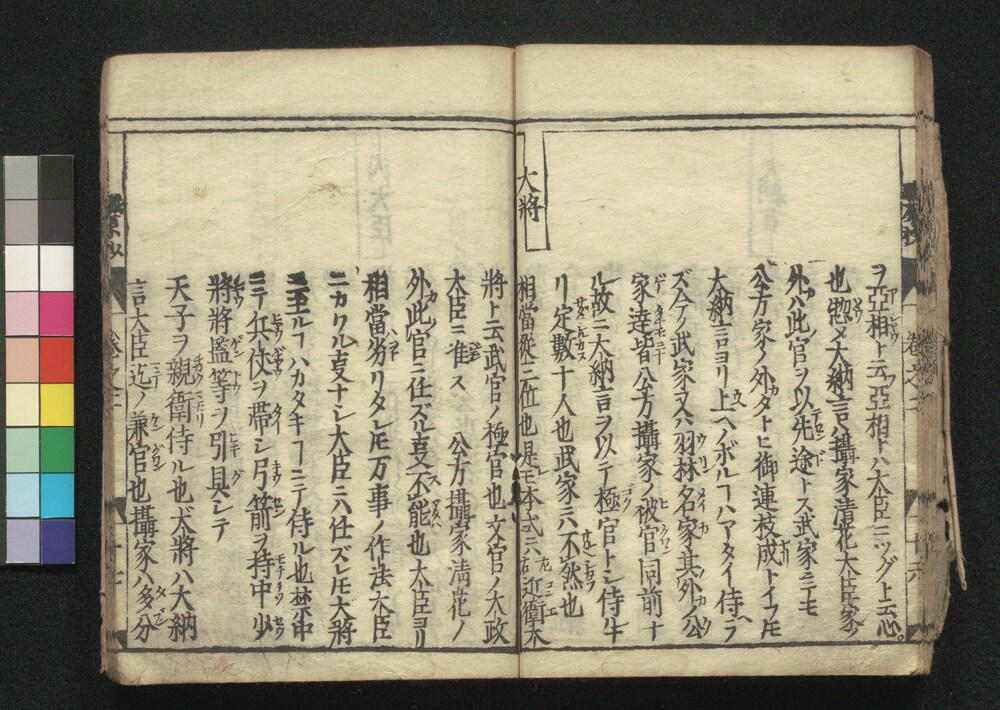 ヲ亞相ト云亞相トハ大臣ニツグト云心
也惣〆大納言ハ攝家清花大臣家ノ
外ハ此官ヲ以先途トス武家ニテモ
公方家ノ外タトヒ御連枝成トイフ𪜈
大納言ヨリ上ヘノボルヿハアタイ侍ラ
ズ今ノ武家又ハ羽林名家其外ノ公
家達皆公方攝家ノ被官同前ナ
ル故ニ大納言ヲ以テ極官トシ侍ル
リ定數十人也武家ニハ不然也
大將
相當從三位也是モ本式ニハ左右近衛大
將ト云武官ノ極官也文官ノ太政
大臣ニ准ス 公方攝家清花ノ
外此官ニ任ズル叓不能也太臣ヨリ
相當劣リタレ𪜈万事ノ作法大臣
ニカワル叓ナシ大臣ニハ仕ズレ𪜈大將
ニ至ルヿハカタキヿニテ侍ル也禁中
ニテ兵仗ヲ帶シ弓箭ヲ持中少
將將監等ヲ引具シテ
天子ヲ親衛侍ル也大將ハ大納
言大臣迄ノ兼官也攝家ハ多分